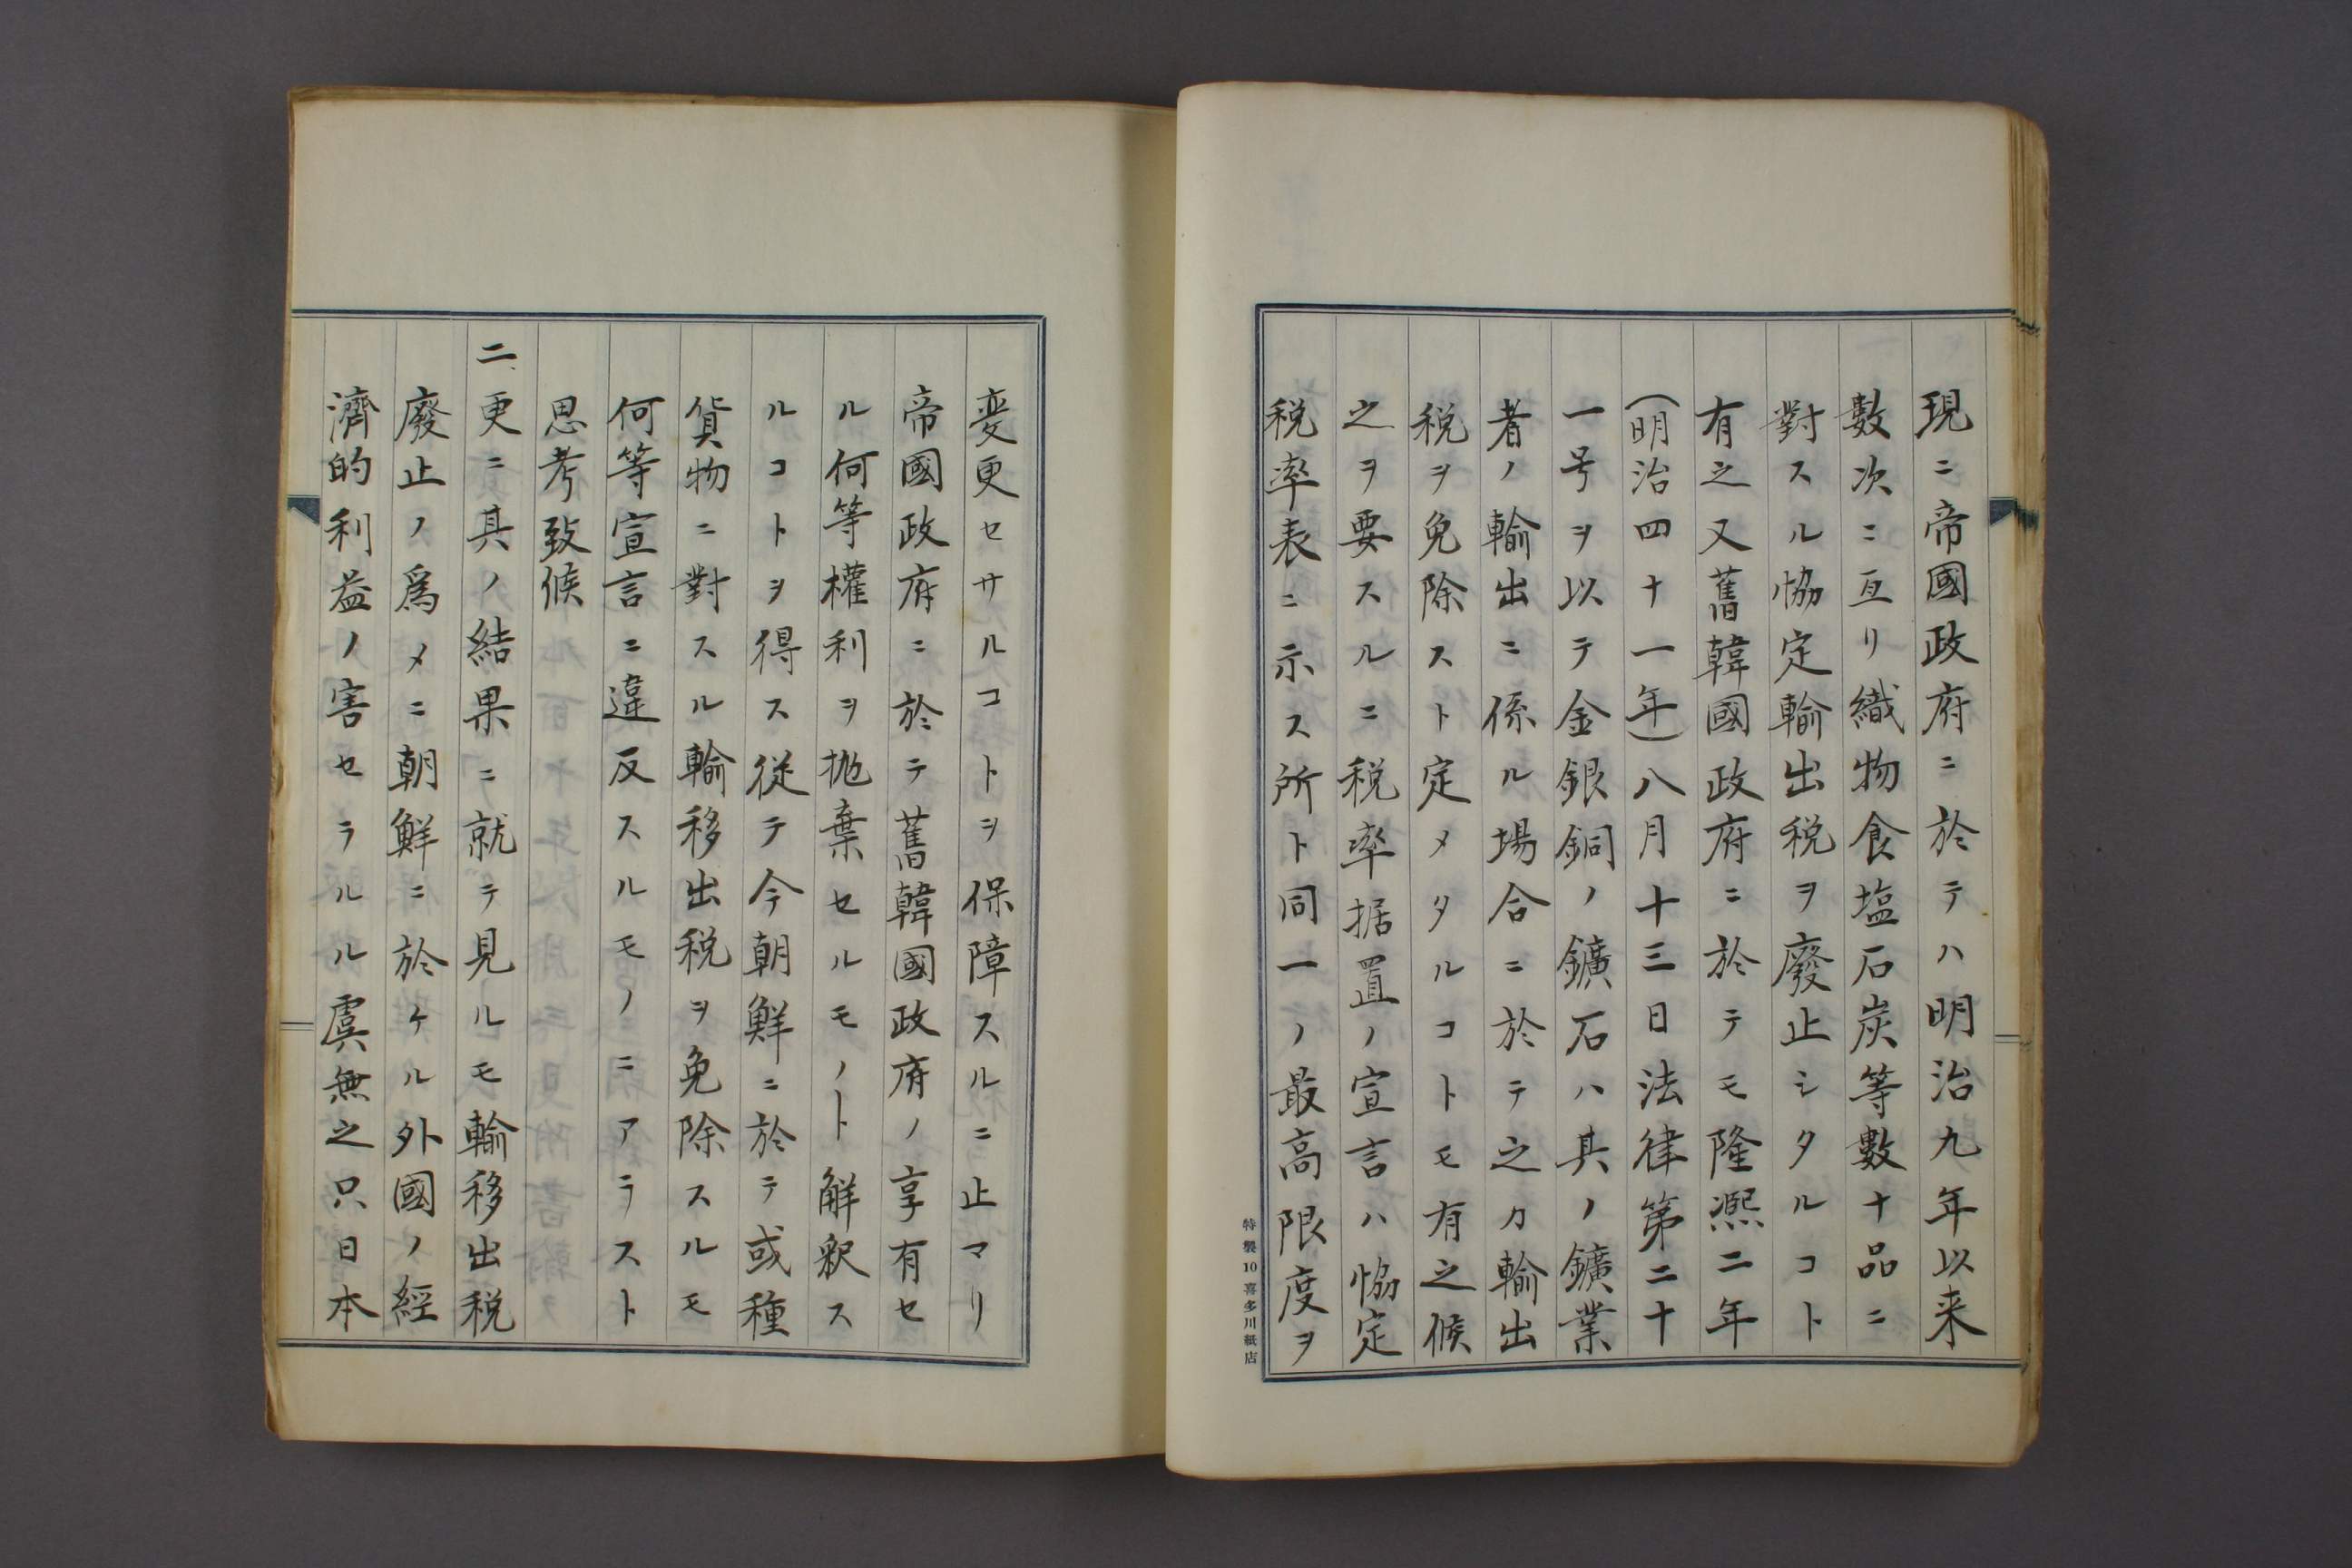 現ニ帝國政府ニ於テハ明治九年以来
數次ニ亙リ織物食塩石炭等數十品ニ
對スル協定輸出税ヲ廢止シタルコト
有之又舊韓國政府ニ於テモ隆凞二年
(明治四十一年)八月十三日法律第二十
一号ヲ以テ金銀銅ノ鑛石ハ其ノ鑛業
者ノ輸出ニ係ル場合ニ於テ之カ輸出
税ヲ免除スト定メタルコトモ有之候
之ヲ要スルニ税率据置ノ宣言ハ協定
税率表ニ示ス所ト同一ノ最高限度ヲ
特製10喜多川紙店
変更セサルコトヲ保障スルニ止マリ
帝國政府ニ於テ舊韓國政府ノ享有セ
ル何等權利ヲ抛棄セルモノト解釈ス
ルコトヲ得ス従テ今朝鮮ニ於テ或種
貨物ニ對スル輸移出税ヲ免除スルモ
何等宣言ニ違反スルモノニアラスト
思考致候
二、更ニ其ノ結果ニ就テ見ルモ輸移出税
廢止ノ爲メニ朝鮮ニ於ケル外國ノ經
濟的利益ノ害セラルル虞無之只日本